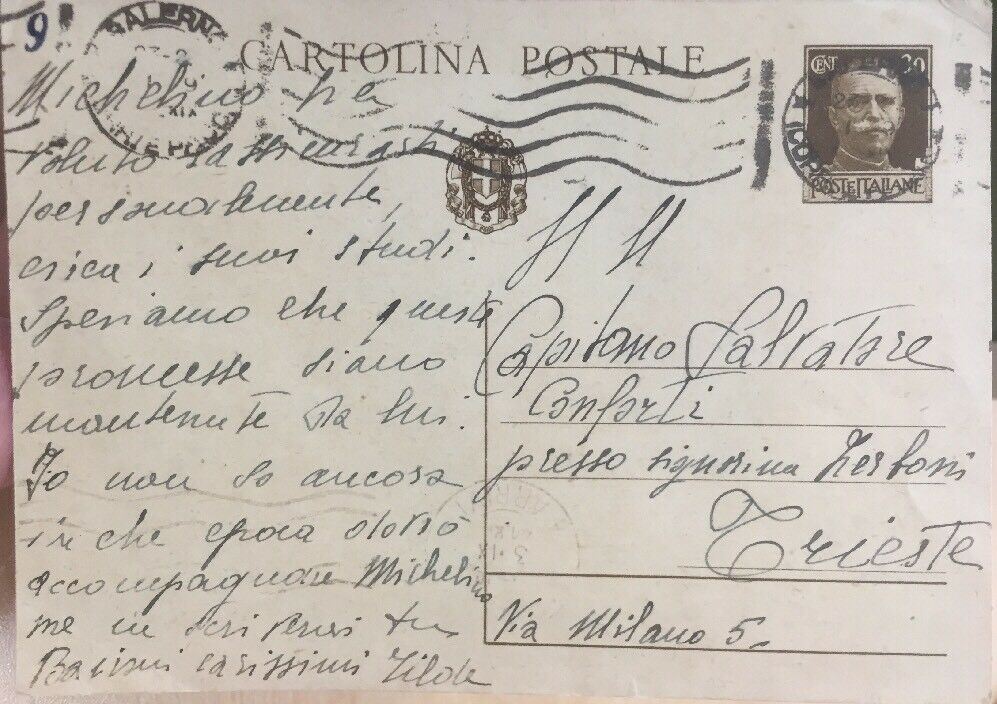 9
SALERNO
CARTOLINA POSTALE
CENT 30
POSTE ITALIANE
Michelino ha
voluto rassicurarti
personalmente,
circa i suoi studi.
Speriamo che queste
promesse siano
mantenute da lui.
Io non so ancora
in che epoca dovrò
accompagnare Michelino
me in
Bacioni carissimi Tilde
Capitano Salvatore
Conforti
presso signorina Zerboni
Trieste
Via Milano 5.